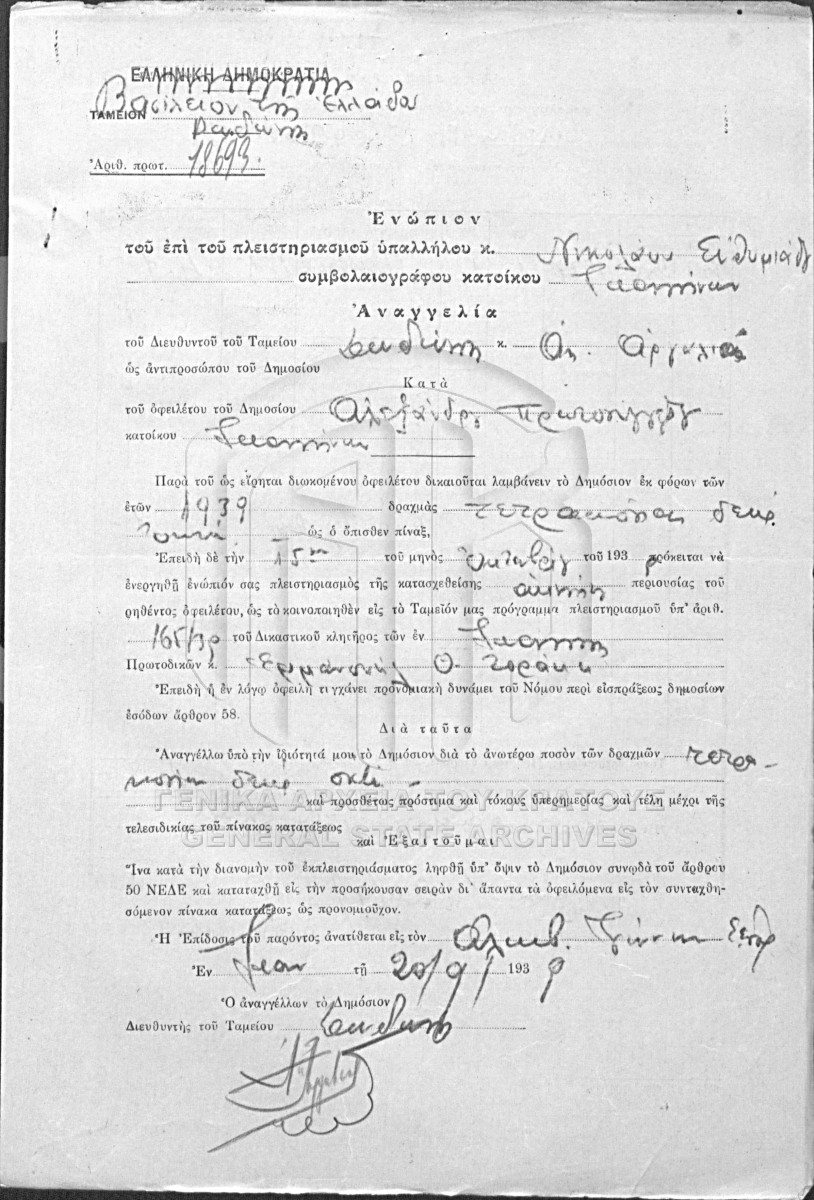 ΕΛΛΗΝΙΚΗ ΔΗΜΟΚΡΑΤΙΑ
Βασίλειον της Ελλάδος
ΤΑΜΕΙΟΝ
Ἀριθ. πρωτ. 18693.
Ἐνώπιον
τοῦ ἐπὶ τοῦ πλειστηριασμοῦ ὑπαλλήλου κ. Νικολάου Εὐθυμιάδη
συμβολαιογράφου κατοίκου
Ἀναγγελία
τοῦ Διευθυντοῦ τοῦ Ταμείου κ.
ὡς ἀντιπροσώπου τοῦ Δημοσίου
Κατὰ
τοῦ ὀφειλέτου τοῦ Δημοσίου Αλεξάνδρου
κατοίκου
Παρὰ τοῦ ὡς εἴρηται διωκομένου ὀφειλέτου δικαιοῦται λαμβάνειν τὸ Δημόσιον ἐκ φόρων τῶν
ἐτῶν 1939 δραχμὰς τετρακοσίας δεκα
οκτώ ὡς ὁ ὄπισθεν πίναξ,
Ἐπειδὴ δὲ τὴν 15ην τοῦ μηνὸς Ὀκτωβρίου τοῦ 1939 πρόκειται νὰ
ἐνεργηθῇ ἐνώπιόν σας πλειστηριασμὸς τῆς κατασχεθείσης ἀκινήτου περιουσίας τοῦ
ρηθέντος ὀφειλέτου, ὡς τὸ κοινοποιηθὲν εἰς τὸ Ταμεῖόν μας πρόγραμμα πλειστηριασμοῦ ὑπ' ἀριθ.
165/39 τοῦ Δικαστικοῦ κλητῆρος τῶν ἐν
Πρωτοδικῶν κ. Εμμανουήλ Θ.
Ἐπειδὴ ἡ ἐν λόγῳ ὀφειλὴ τιγχάνει προνομιακὴ δυνάμει τοῦ Νόμου περὶ εἰσπράξεως δημοσίων
ἐσόδων ἄρθρον 58.
Διὰ ταῦτα
Ἀναγγέλλω ὑπὸ τὴν ἰδιότητά μου τὸ Δημόσιον διὰ τὸ ἀνωτέρω ποσὸν τῶν δραχμῶν τετρα-
κοσίων δεκα οκτώ -
καὶ προσθέτως πρόστιμα καὶ τόκους ὑπερημερίας καὶ τέλη μέχρι τῆς
τελεσιδικίας τοῦ πίνακος κατατάξεως
καὶ Ἐξαιτοῦμαι
Ἵνα κατὰ τὴν διανομὴν τοῦ ἐκπλειστηριάσματος ληφθῇ ὑπ' ὄψιν τὸ Δημόσιον συνῳδὰ τοῦ ἄρθρου
50 ΝΕΔΕ καὶ καταταχθῇ εἰς τὴν προσήκουσαν σειρὰν δι' ἅπαντα τὰ ὀφειλόμενα εἰς τὸν συνταχθη-
σόμενον πίνακα κατατάξεως ὡς προνομιοῦχον.
Ἡ Ἐπίδοσις τοῦ παρόντος ἀνατίθεται εἰς τὸν
Ἐν τῇ 20/9/1939
Ὁ ἀναγγέλλων τὸ Δημόσιον
Διευθυντὴς τοῦ Ταμείου
ΓΕΝΙΚΑ ΑΡΧΕΙΑ ΤΟΥ ΚΡΑΤΟΥΣ
GENERAL STATE ARCHIVES